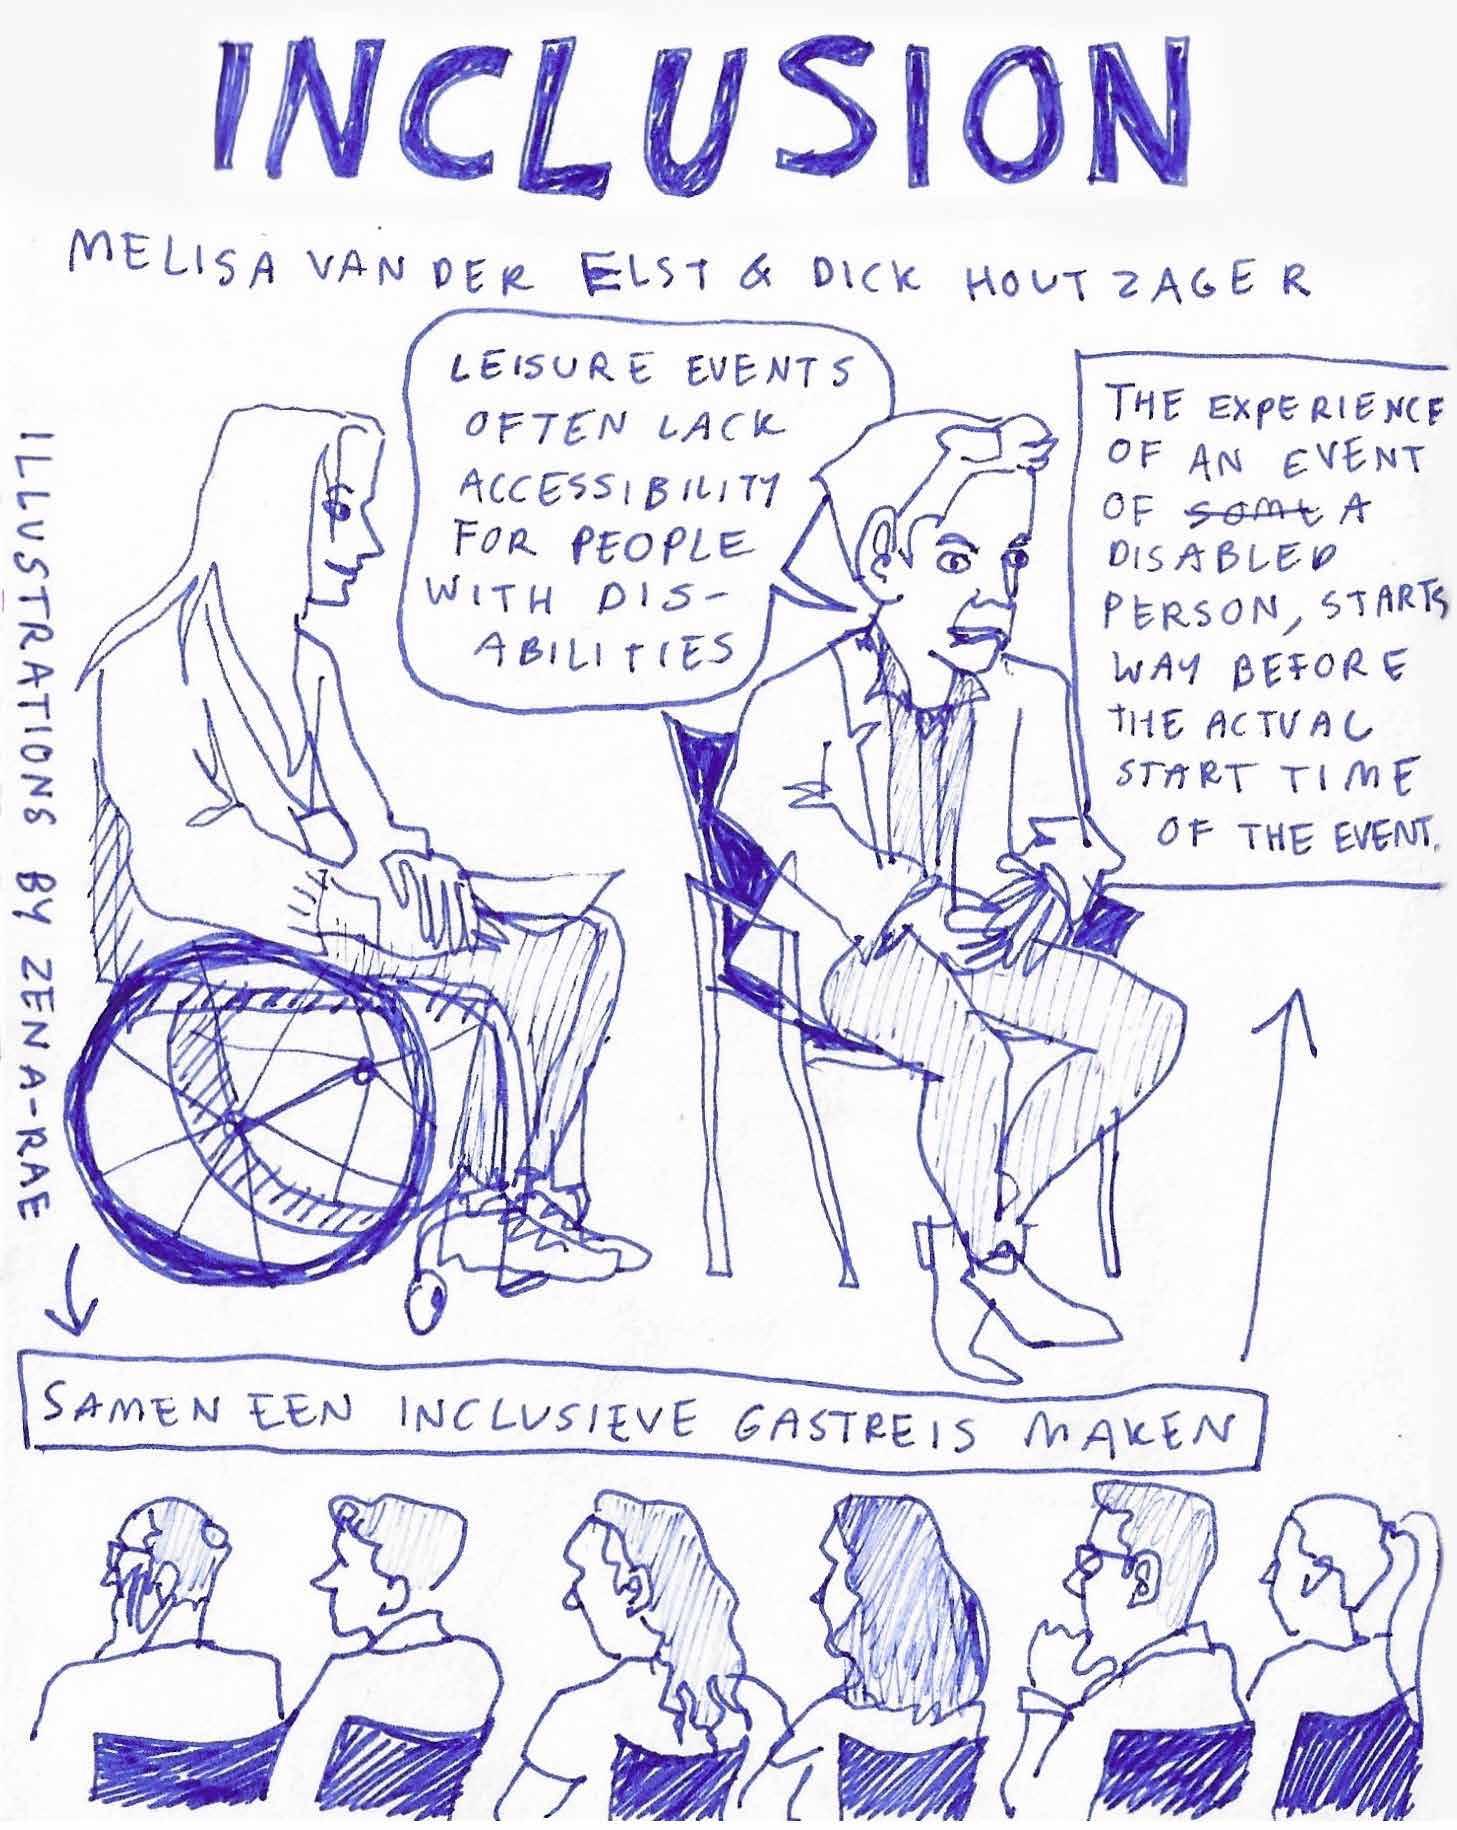 INCLUSION
MELISA VAN DER ELST & DICK HOUTZAGER
LEISURE EVENTS
OFTEN LACK
ACCESSIBILITY
FOR PEOPLE
WITH DIS-
ABILITIES
THE EXPERIENCE
OF AN EVENT
OF some A
DISABLED
PERSON, STARTS
WAY BEFORE
THE ACTUAL
START TIME
OF THE EVENT.
ILLUSTRATIONS BY ZENA-RAE
SAMEN EEN INCLUSIEVE GASTREIS MAKEN